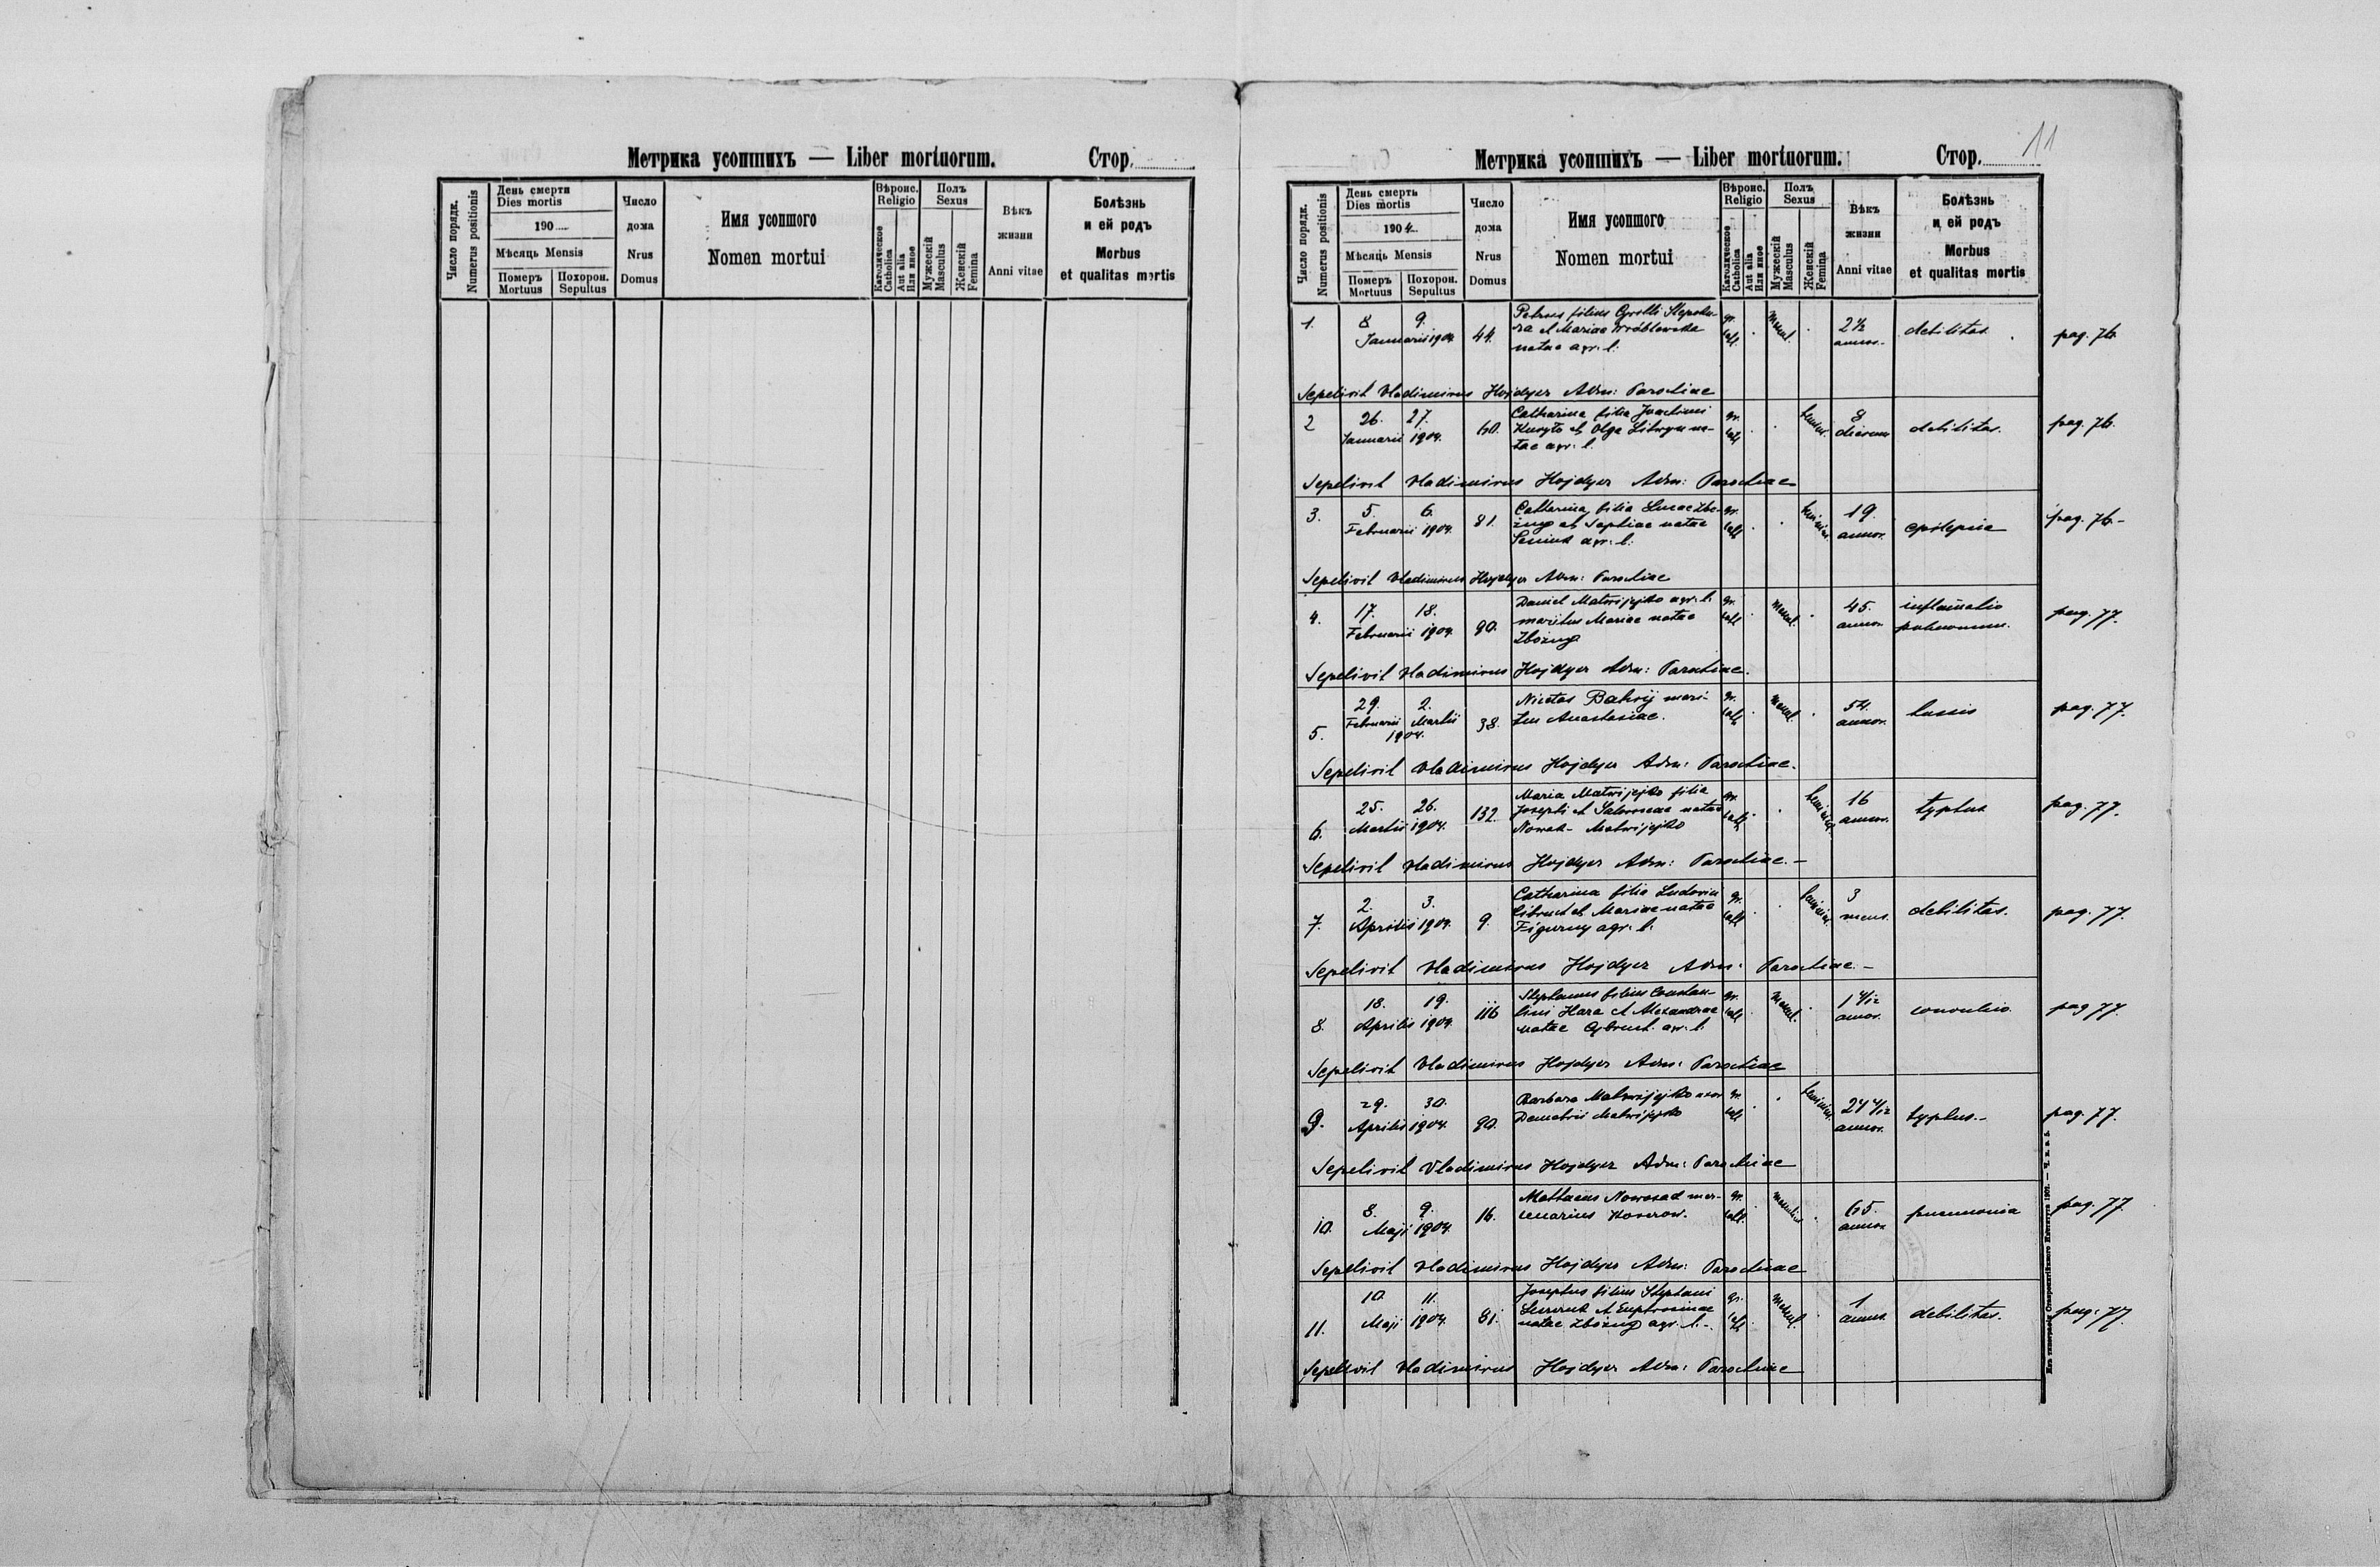 Метрика усопшихъ — Liber mortuorum. Стор.
Число порядк. Numerus positionis
День смерти
Dies mortis
190
Мѣсяць Mensis
Померъ Mortuus
Похорон. Sepultus
Число дома Nrus Domus
Имя усопшого
Nomen mortui
Вѣроис. Religio
Католическое Catholica
Aut alia Или иное
Полъ Sexus
Мужескій Masculus
Женскій Femina
Вѣкъ жизни Anni vitae
Болѣзнь и ей родъ
Morbus et qualitas mortis
11
Метрика усопшихъ — Liber mortuorum. Стор.
Число порядк. Numerus positionis
День смерть
Dies mortis
1904
Мѣсяць Mensis
Померъ Mortuus
Похорон. Sepultus
Число дома Nrus Domus
Имя усопшого
Nomen mortui
Вѣроис. Religio
Католическое Catholica
Aut alia Или иное
Полъ Sexus
Мужескій Masculus
Женскій Femina
Вѣкъ жизни Anni vitae
Болѣзнь и ей родъ
Morbus et qualitas mortis
1. 8 9. Januarii 1904 44. Petrus filius Cyrilli et Mariae Wróblewska natae agr. l. gr. cath. mascul. 2½ annor. debilitas pag. 76.
Sepelivit Vladimirus Hojdyer Adm: Parochiae
2 26. 27. Januarii 1904. 60. Catharina filia Joachimi et Olga natae agr. l. gr. cath. 8 dierum debilitas. pag. 76.
Sepelivit Vladimirus Hojdyer Adm: Parochiae
3. 5. 6. Februarii 1904. 81. Catharina filia Lucae Zbożny et Sophiae natae agr. l. gr. cath. 19. annor. epilepsia pag. 76-
Sepelivit Vladimirus Hojdyer Adm: Parochiae
4. 17. 18. Februarii 1904. 90. Daniel Matwijejko agr. l. maritus Mariae natae Zbożny gr. cath. mascul. 45. annor. inflamatio pulmonum. pag. 77.
Sepelivit Vladimirus Hojdyer Adm: Parochiae.
5. 29. Februarii 2. Martii 1904. 38. Nicetas maritus Anastasiae. gr. cath. mascul. 54. annor. tussis pag. 77.
Sepelivit Vladimirus Hojdyer Adm: Parochiae.
6. 25. 26. Martii 1904. 132. Maria Matwijejko filia Josephi et natae Nowak - Matwijejko gr. cath. 16 annor. typhus pag. 77.
Sepelivit Vladimirus Hojdyer Adm: Parochiae. -
7. 2. 3. Aprilis 1904. 9. Catharina filia Ludovici et Mariae natae Figurny agr. l. gr. cath. 3 mens. debilitas. pag. 77.
Sepelivit Vladimirus Hojdyer Adm: Parochiae. -
8. 18. 19. Aprilis 1904. 116 Stephanus filius Constantini Hara et Alexandrae natae agr. l. gr. cath. mascul. annor. pag 77.
Sepelivit Vladimirus Hojdyer Adm: Parochiae
9. 29. 30. Aprilis 1904. 90. Barbara Matwijejko uxor Demetrii Matwijejko gr. cath. annor. typhus. - pag. 77.
Sepelivit Vladimirus Hojdyer Adm: Parochiae
10. 8. 9. Maji 1904. 16. Mathaeus Nowosad mercenarius gr. cath. 65. annor. pneumonia pag. 77
Sepelivit Vladimirus Hojdyer Adm: Parochiae
11. 10. 11. Maji 1904. 81. Josephus filius Stephani et Euphrosinae natae Zbożny agr. l. - gr. cath. mascul. 1 annus. debilitas. pag. 77.
Sepelivit Vladimirus Hojdyer Adm: Parochiae